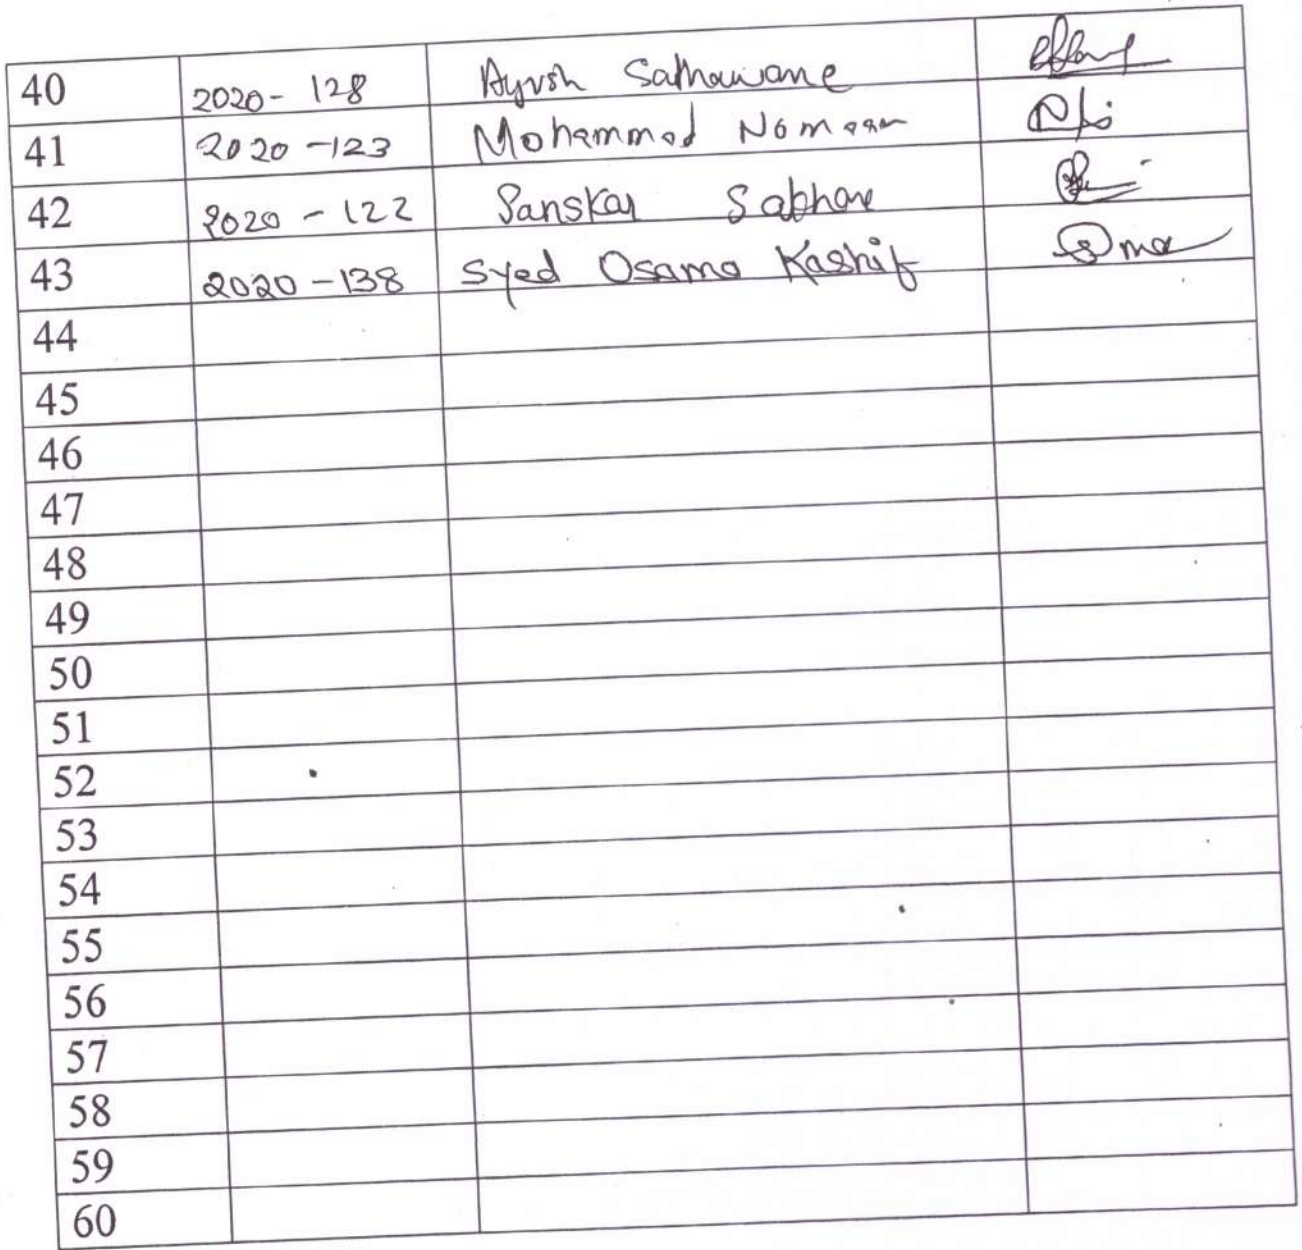 40 2020-128 Ayush Sathawane
41 2020-123 Mohammad Nomaan
42 2020-122 Sanskar
43 2020-138 Syed Osama Kashif
44
45
46
47
48
49
50
51
52
53
54
55
56
57
58
59
60